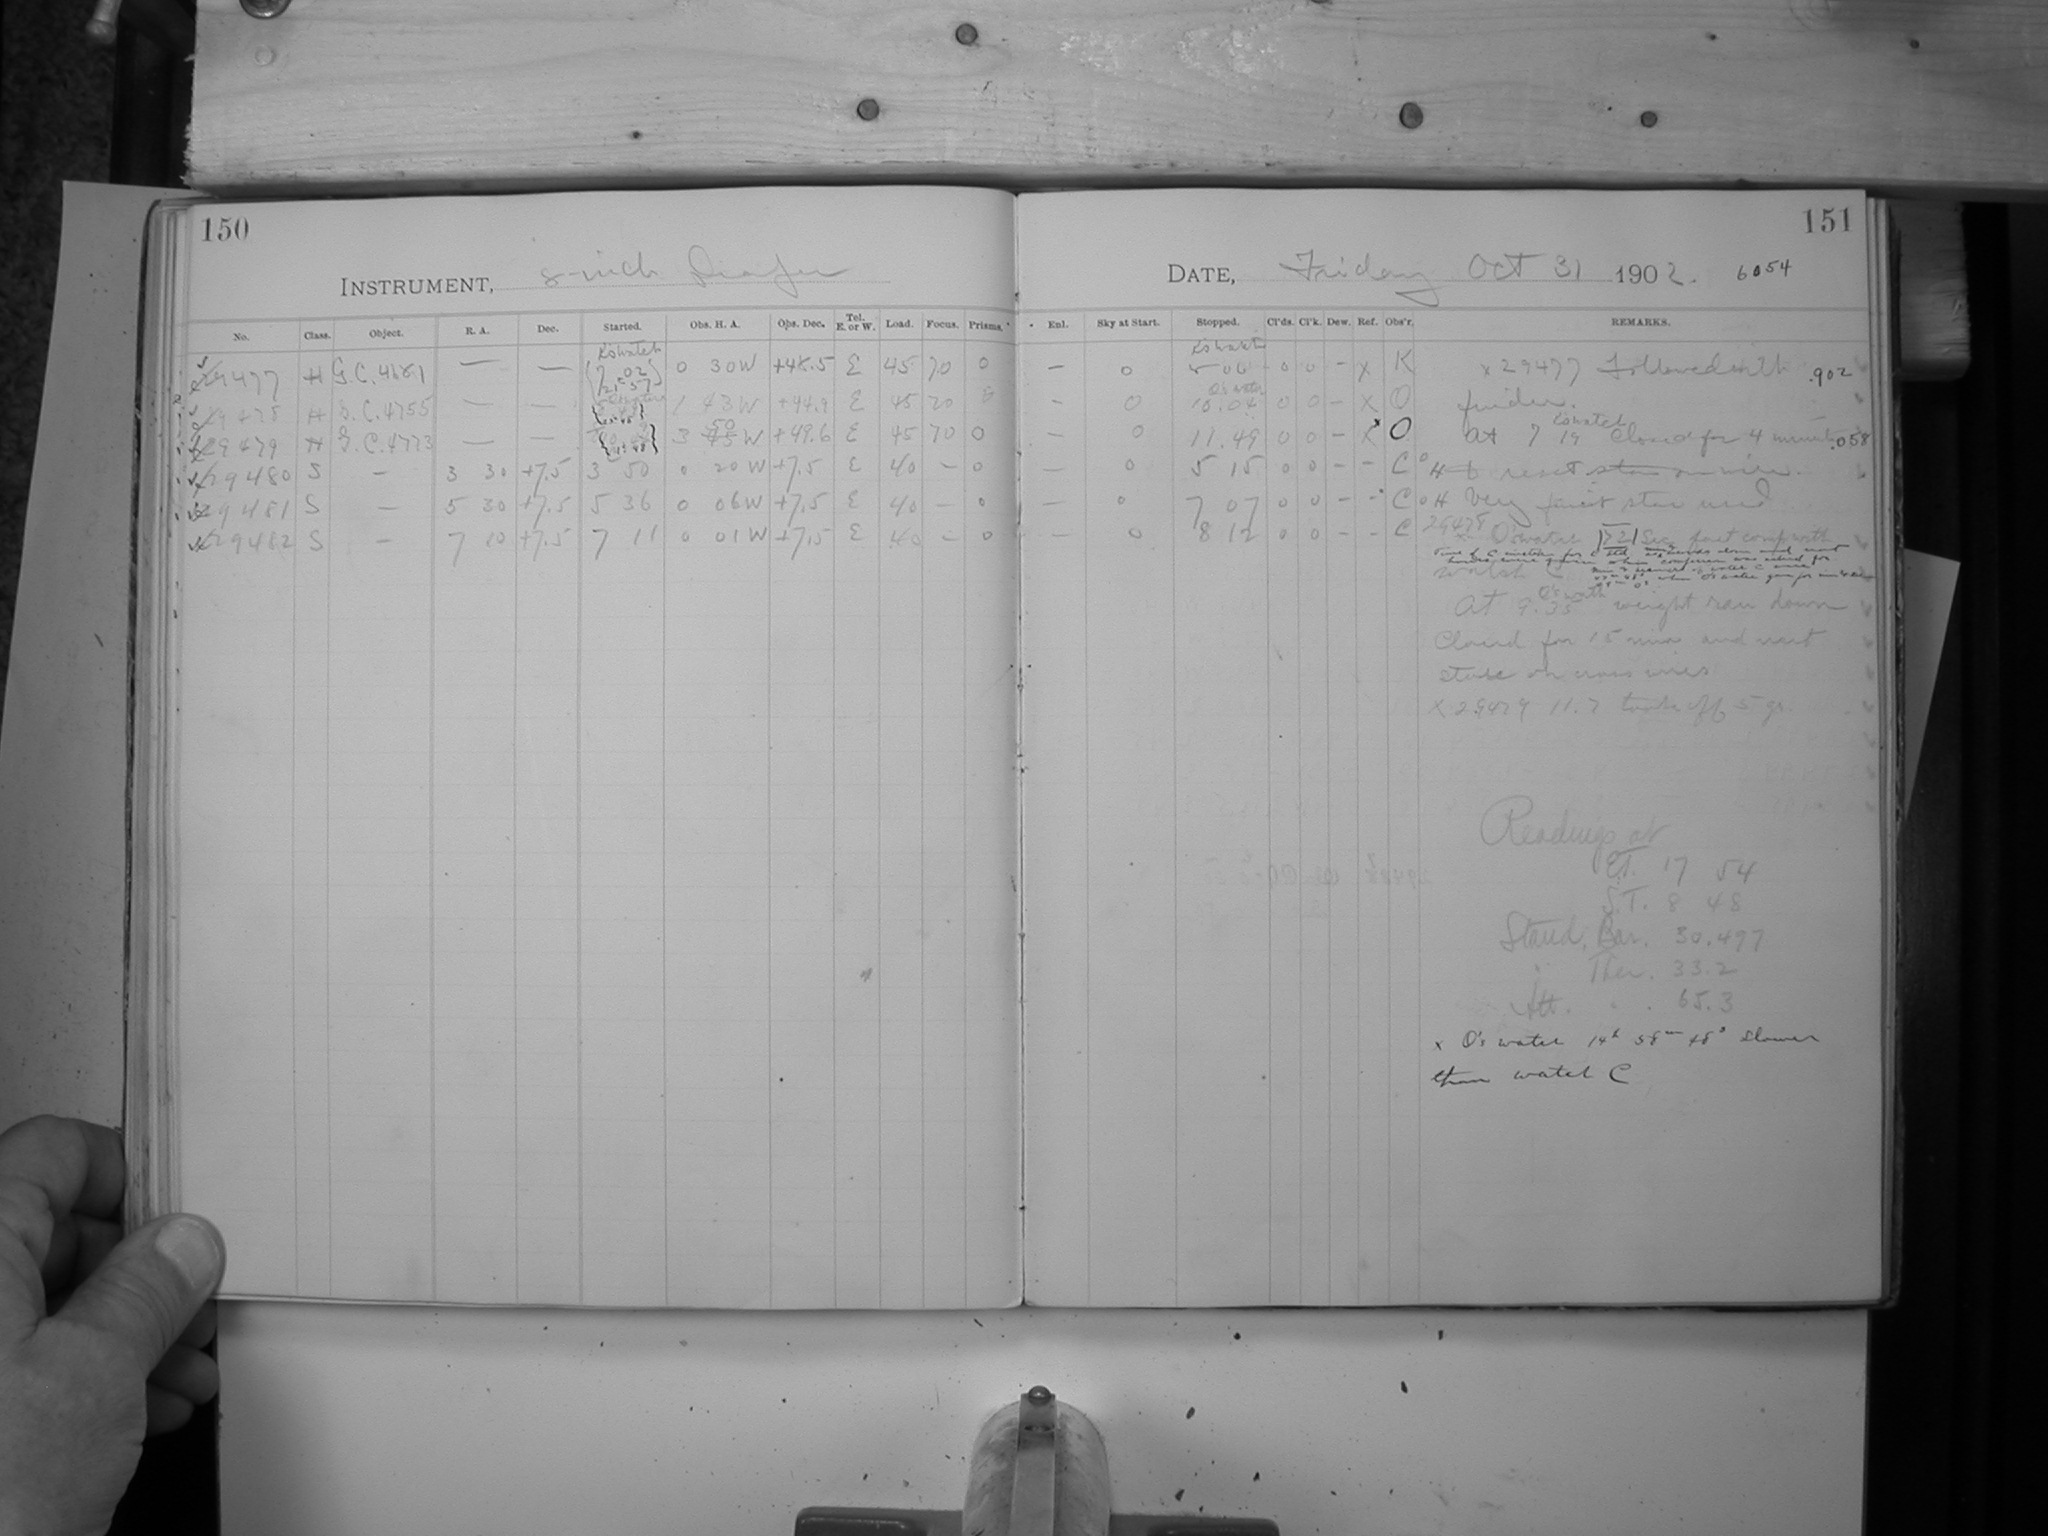 150
INSTRUMENT, 8-inch Draper
No. Class. Object. R. A. Dec. Started. Obs. H. A. Obs. Dec. Tel. E. or W. Load. Focus. Prisms.
29477 H G.C. 4681 — — K's watch 7 02 21 57 0 30 W +48.5 E 45 70 0
29478 H G.C. 4755 — — 1 43 W +44.9 E 45 70
29479 H G.C. 4773 — — 3 50 W +49.6 E 45 70 0
29480 S — 3 30 +7.5 3 50 0 20 W +7.5 E 40 — 0
29481 S — 5 30 +7.5 5 36 0 06 W +7.5 E 40 — 0
29482 S — 7 10 +7.5 7 11 0 01 W +7.5 E 40 — 0
151
DATE, Friday Oct 31 1902. 6054
Enl. Sky at Start. Stopped. Cl'ds. Cl'k. Dew. Ref. Obs'r. REMARKS.
— 0 K's watch 0 0 — x K x 29477 Followed with .902
— 0 O's watch 10.04 0 0 — x O finder.
— 0 11.49 0 0 — x O At 7 19 K's watch closed for 4 minutes .058
— 0 5 15 0 0 — — C H reset star on wire.
— 0 7 07 0 0 — — C H Very faint star used
— 0 8 12 0 0 — — C 29478 O's watch Sec. fast comp with
watch C.
At 9.35 O's watch weight ran down
Closed for 15 min and reset
stars on cross wires
x 29479 11.7 took off 5 gr.
Readings at
E.T. 17 54
S.T. 8 48
Stand. Bar. 30.497
Ther. 33.2
Att. 65.3
x O's watch 14h 58m 48s slower
than watch C